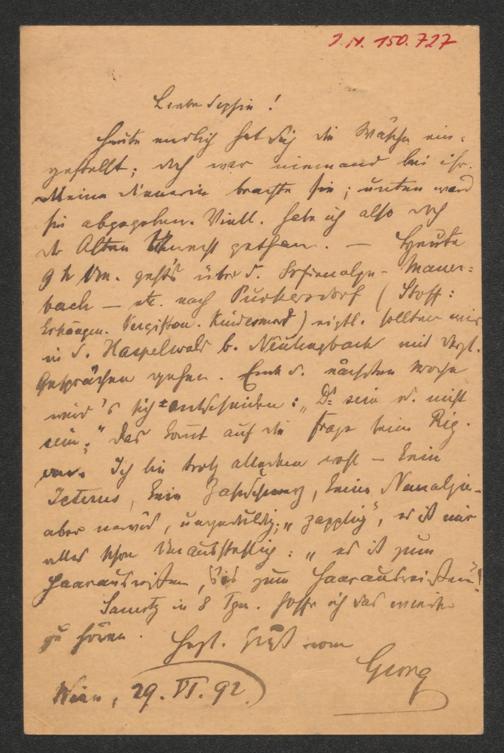 J.N. 150.727
Liebe Sophie!
Heute endlich hat sich die Wäsche ein-
gestellt; doch war niemand bei ihr.
Meine Dienerin brachte sie; unten ward
sie abgegeben. Viell. habe ich also doch
der Alten Unrecht gethan. — Heute
9 h Vm. geht's über d. Sofienalpe - Mauer-
bach — etc. nach Purkersdorf (Stoff:
Erhängen. Vergiften. Kindermord) eigtl. sollten wir
in d. Haspelwald b. Neulengbach mit
Gesprächen gehen. Ende d. nächsten Woche
wird's sich entscheiden: „ sein o. nicht
sein." Das kommt auf die Frage beim Rig.
an. Ich bin trotz alledem wohl — kein
Icterus, kein Zahnschmerz, keine Neuralgie-
aber nervös, ungeduldig, „zapplig", es ist mir
alles schon unausstehlich: „es ist zum
Haarausreißen, 's ist zum Haarausreißen!
in 8 Tgn. hoffe ich das weitere
zu hören. Hzgl. Gruß von
Georg
Wien, 29. VI. 92.